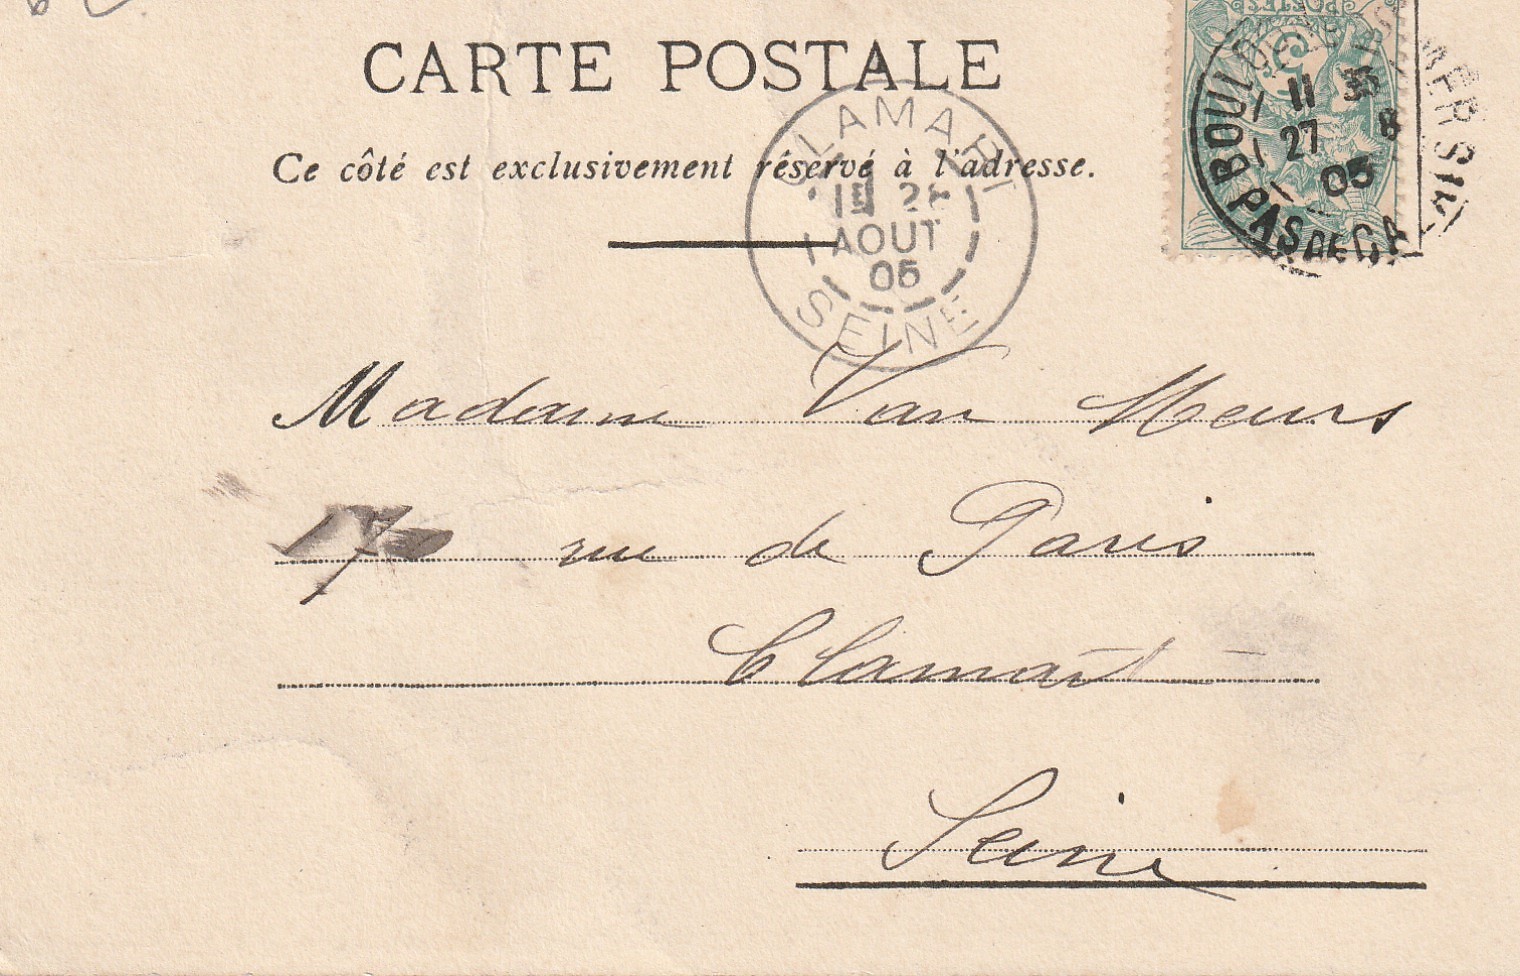 CARTE POSTALE
Ce côté est exclusivement réservé à l'adresse.
POSTES
5
BOULOGNE SUR MER
PAS DE CA
11 35
27 8
05
CLAMART
AOUT
05
SEINE
Madame Van Meurs
rue de Paris
Clamart
Seine